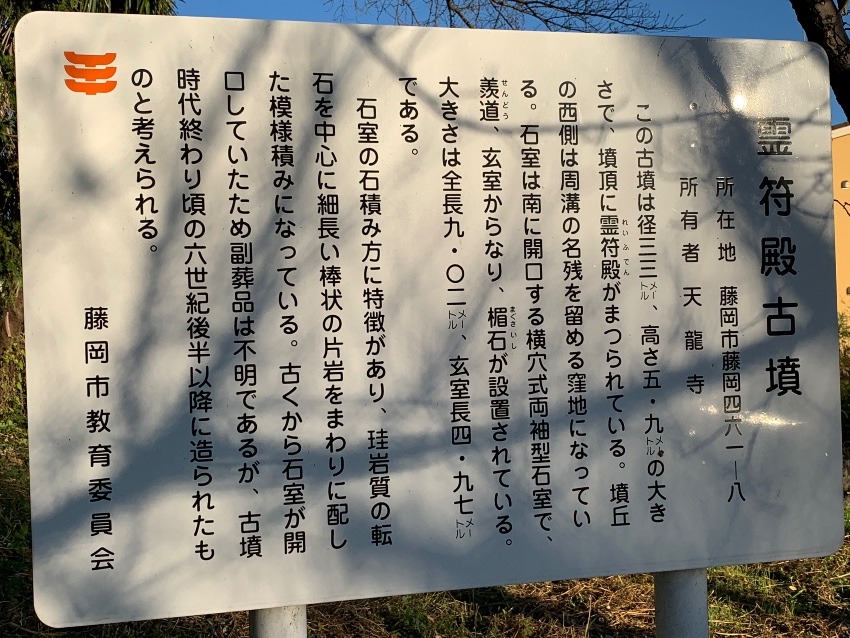 霊符殿古墳
所在地　藤岡市藤岡四六一―八
所有者　天龍寺
この古墳は径三三メートル、高さ五・九メートルの大き
さで、墳頂に霊符殿がまつられている。墳丘
の西側は周溝の名残を留める窪地になってい
る。石室は南に開口する横穴式両袖型石室で、
羨道、玄室からなり、楣石が設置されている。
大きさは全長九・〇二メートル、玄室長四・九七メートル
である。
石室の石積み方に特徴があり、珪岩質の転
石を中心に細長い棒状の片岩をまわりに配し
た模様積みになっている。古くから石室が開
口していたため副葬品は不明であるが、古墳
時代終わり頃の六世紀後半以降に造られたも
のと考えられる。
藤岡市教育委員会